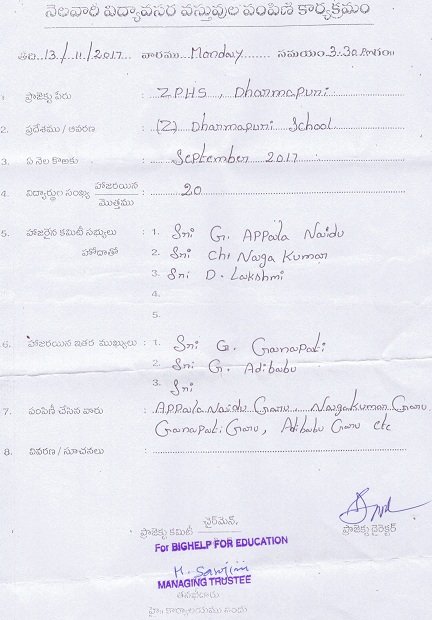 నెలవారి విద్యావసర వస్తువుల పంపిణీ కార్యక్రమం
తేది 13/11/2017 వారము Monday సమయం 3.30
1 ప్రాజెక్టు పేరు : ZPHS, Dharmapuri
2. ప్రదేశము / ఆవరణ : (Z) Dharmapuri School
3. ఏ నెల కొఱకు : September 2017
4. విద్యార్థుల సంఖ్య హాజరయిన : 20
మొత్తము
5. హాజరైన కమిటీ సభ్యులు : 1. Sri G. Appala Naidu
హోదాతో 2. Sri Ch. Naga Kumar
3. Sri D. Lakshmi
4.
5.
6. హాజరయిన ఇతర ముఖ్యులు : 1. Sri G. Ganapati
2. Sri G. Adibabu
3. Sri
7. పంపిణీ చేసిన వారు : Appala Naidu Garu Nagakumar Garu
Ganapati Garu, Adibabu Garu etc
8. వివరణ / సూచనలు :
చైర్మెన్,
ప్రాజెక్టు కమిటీ ప్రాజెక్టు డైరెక్టర్
For BIGHELP FOR EDUCATION
MANAGING TRUSTEE